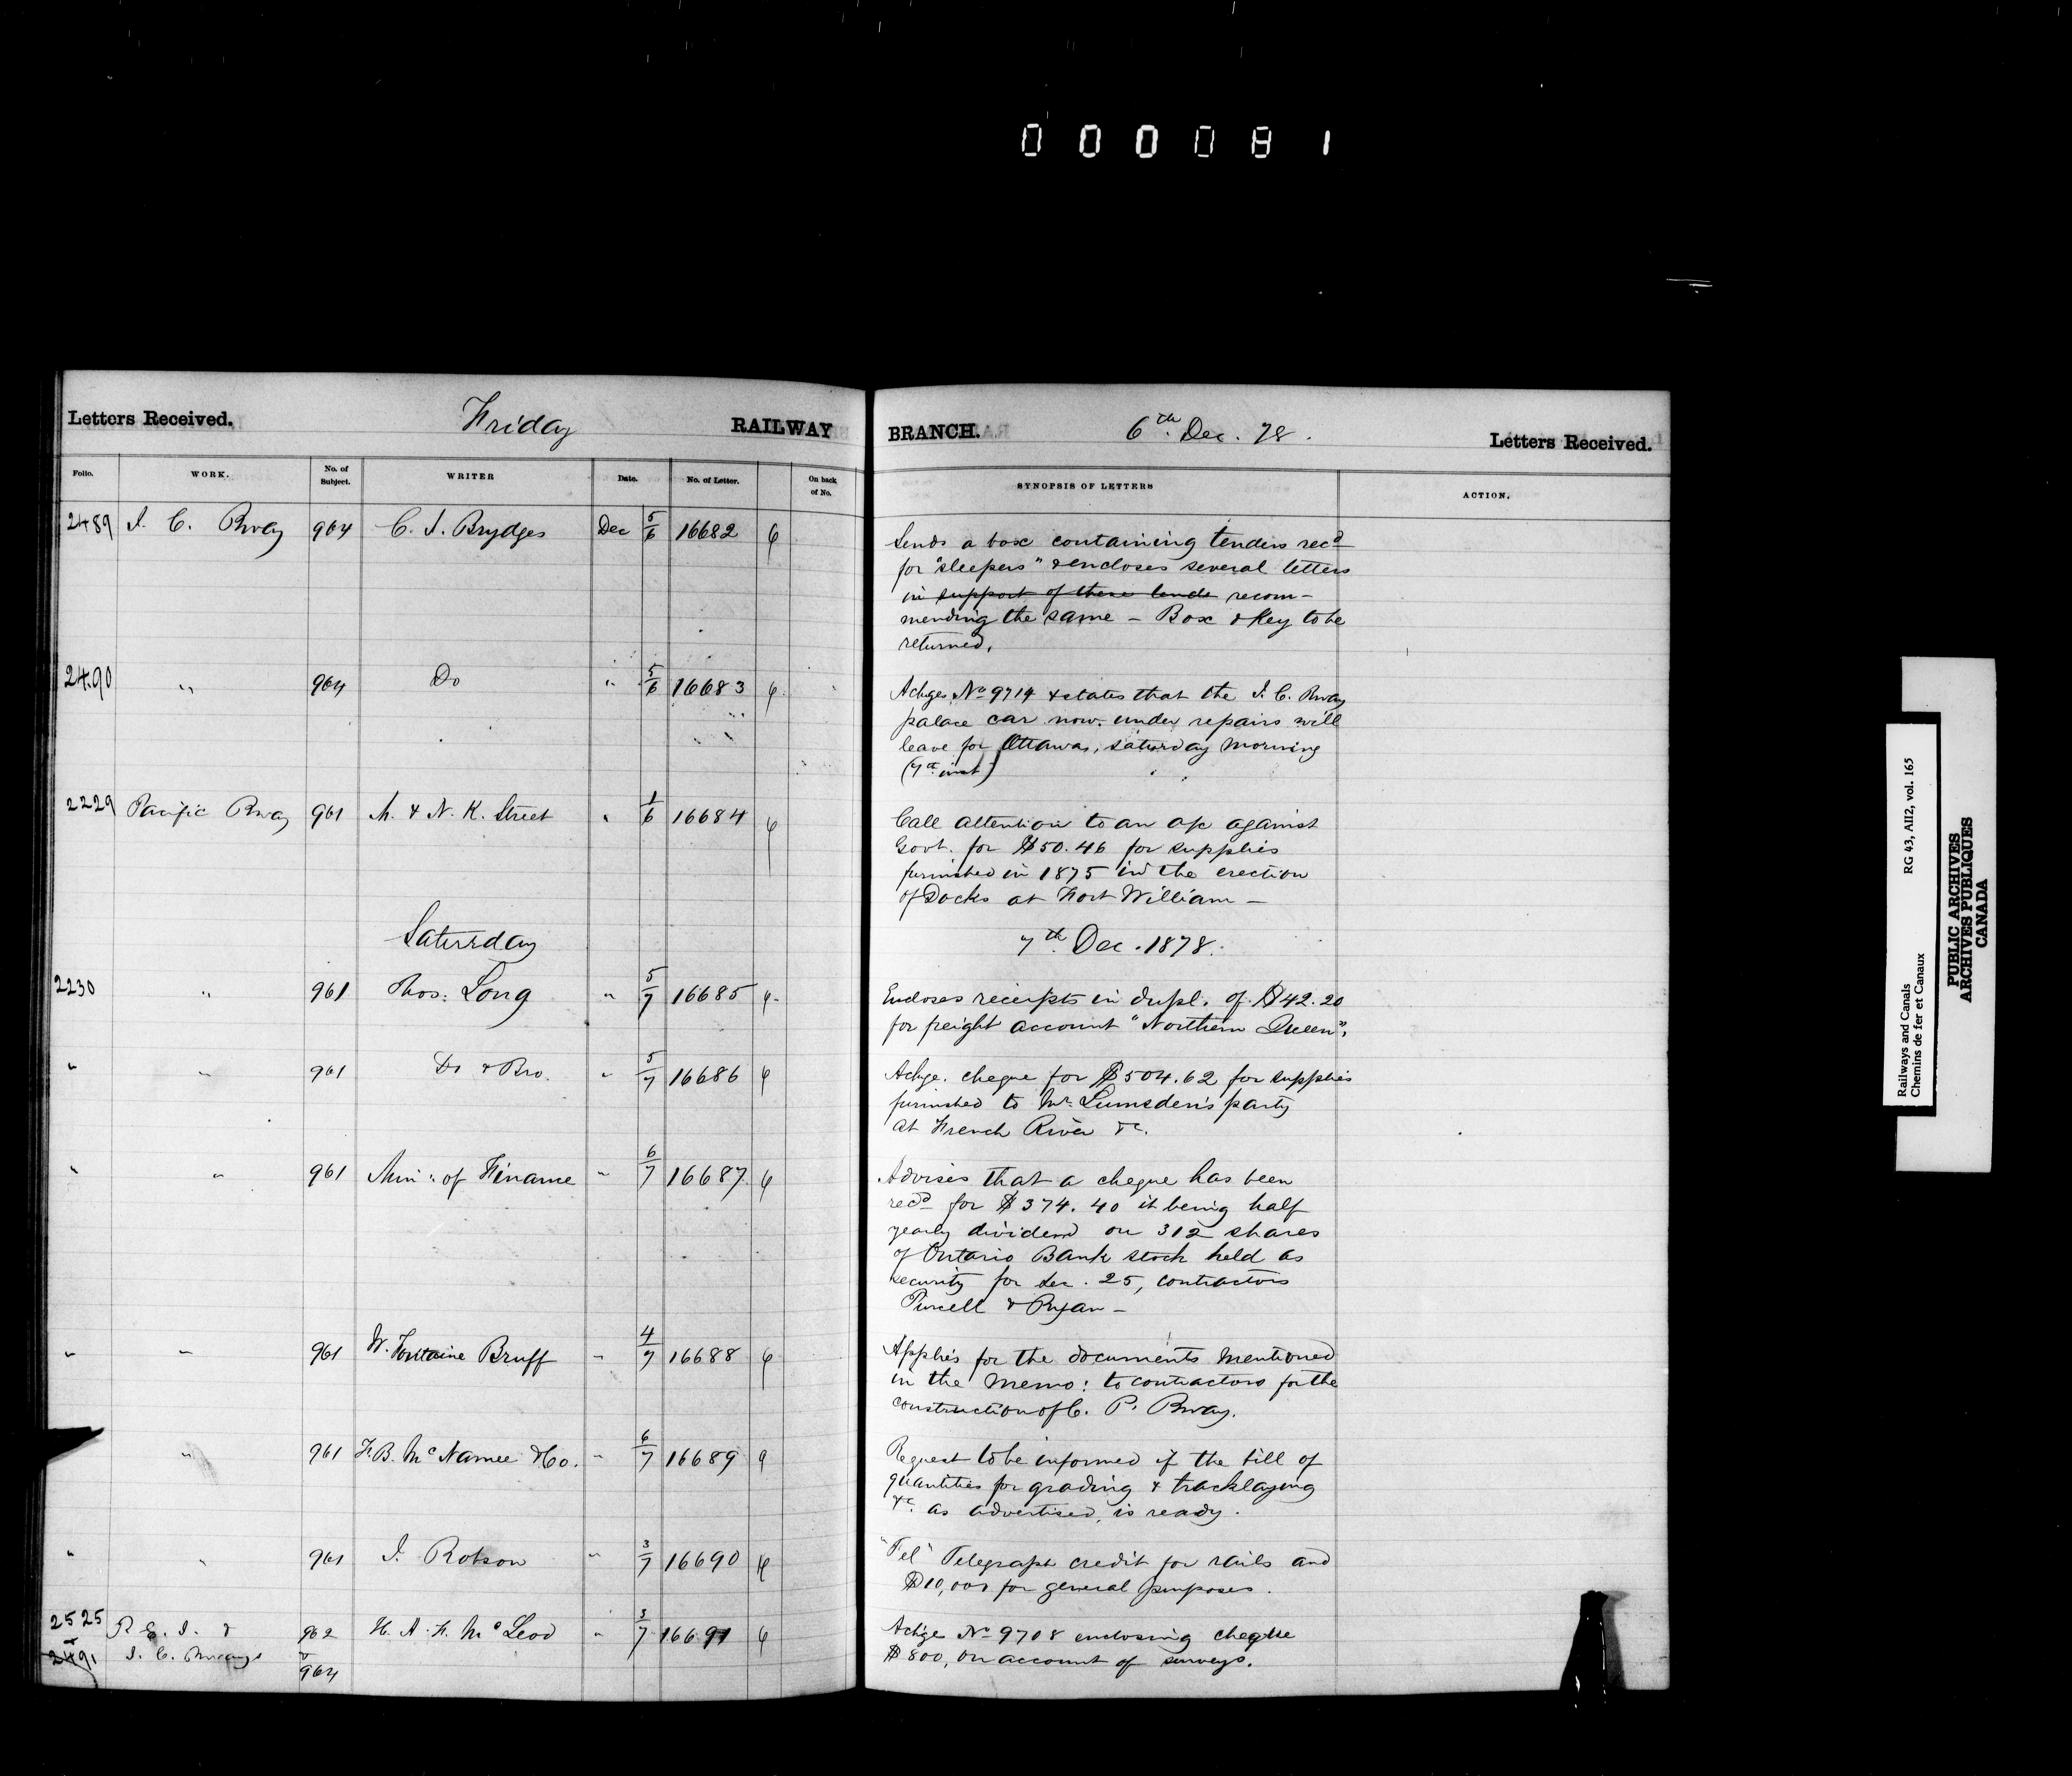 000081
Letters Received. Friday RAILWAY BRANCH. 6th Dec. 78. Letters Received.
Folio. WORK. No. of Subject. WRITER Date. No. of Letter. On back of No. SYNOPSIS OF LETTERS ACTION.
2489 I. C. Rway 964 C. J. Brydges Dec 5/6 16682
Sends a box containing tenders recd
for "sleepers" & encloses several letters
in support of these tends recom-
mending the same - Box & Key to be
returned.
2490 " 964 Do " 5/6 16683
Ackges No 9714 & states that the I. C. Rway
palace car now under repairs will
leave for Ottawa, Saturday Morning
(7th inst)
2229 Pacific Rway 961 M. & N. K. Street " 1/6 16684
Call attention to an a/c against
Govt. for $50.46 for supplies
furnished in 1875 in the erection
of Docks at Fort William -
Saturday 7th Dec. 1878.
2230 " 961 Thos: Long " 5/7 16685
Encloses receipts in dupl. of $42.20
for freight account "Northern Queen".
" " 961 Do & Bro. " 5/7 16686
Ackge. cheque for $504.62 for supplies
furnished to Mr. Lumsden's party
at French River &c.
" " 961 Min: of Finance " 6/7 16687
Advises that a cheque has been
recd for $374.40 it being half
yearly dividend on 312 shares
of Ontario Bank stock held as
security for Sec. 25, contractors
Purcell & Ryan -
" " 961 W. Fontaine Bruff " 4/7 16688
Applies for the documents mentioned
in the Memo: to contractors for the
construction of C. P. Rway.
" 961 F. B. McNamee & Co. " 6/7 16689
Request to be informed if the bill of
quantities for grading & tracklaying
&c. as advertised, is ready.
" " 961 J. Robson " 3/7 16690
"Tel" Telegraph credit for rails and
$10,000 for general purposes.
2525 & 2491 P. E. I. & I. C. Rways 962 & 964 H. A. F. McLeod " 3/7 16691
Ackge No 9708 enclosing cheque
$800, on account of surveys.
Railways and Canals RG 43, AII2, vol. 165
Chemins de fer et Canaux
PUBLIC ARCHIVES
ARCHIVES PUBLIQUES
CANADA